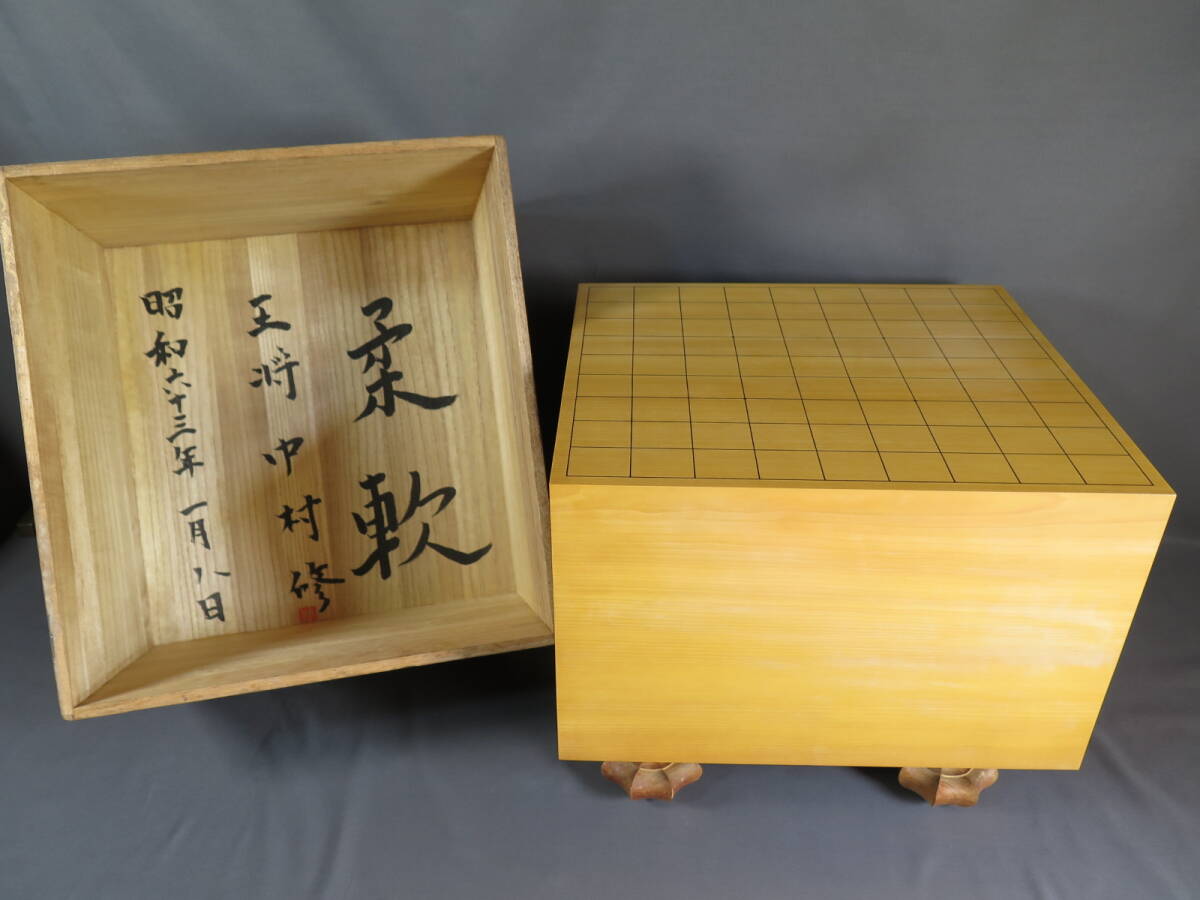 柔軟
王将 中村修
昭和六十三年 一月八日